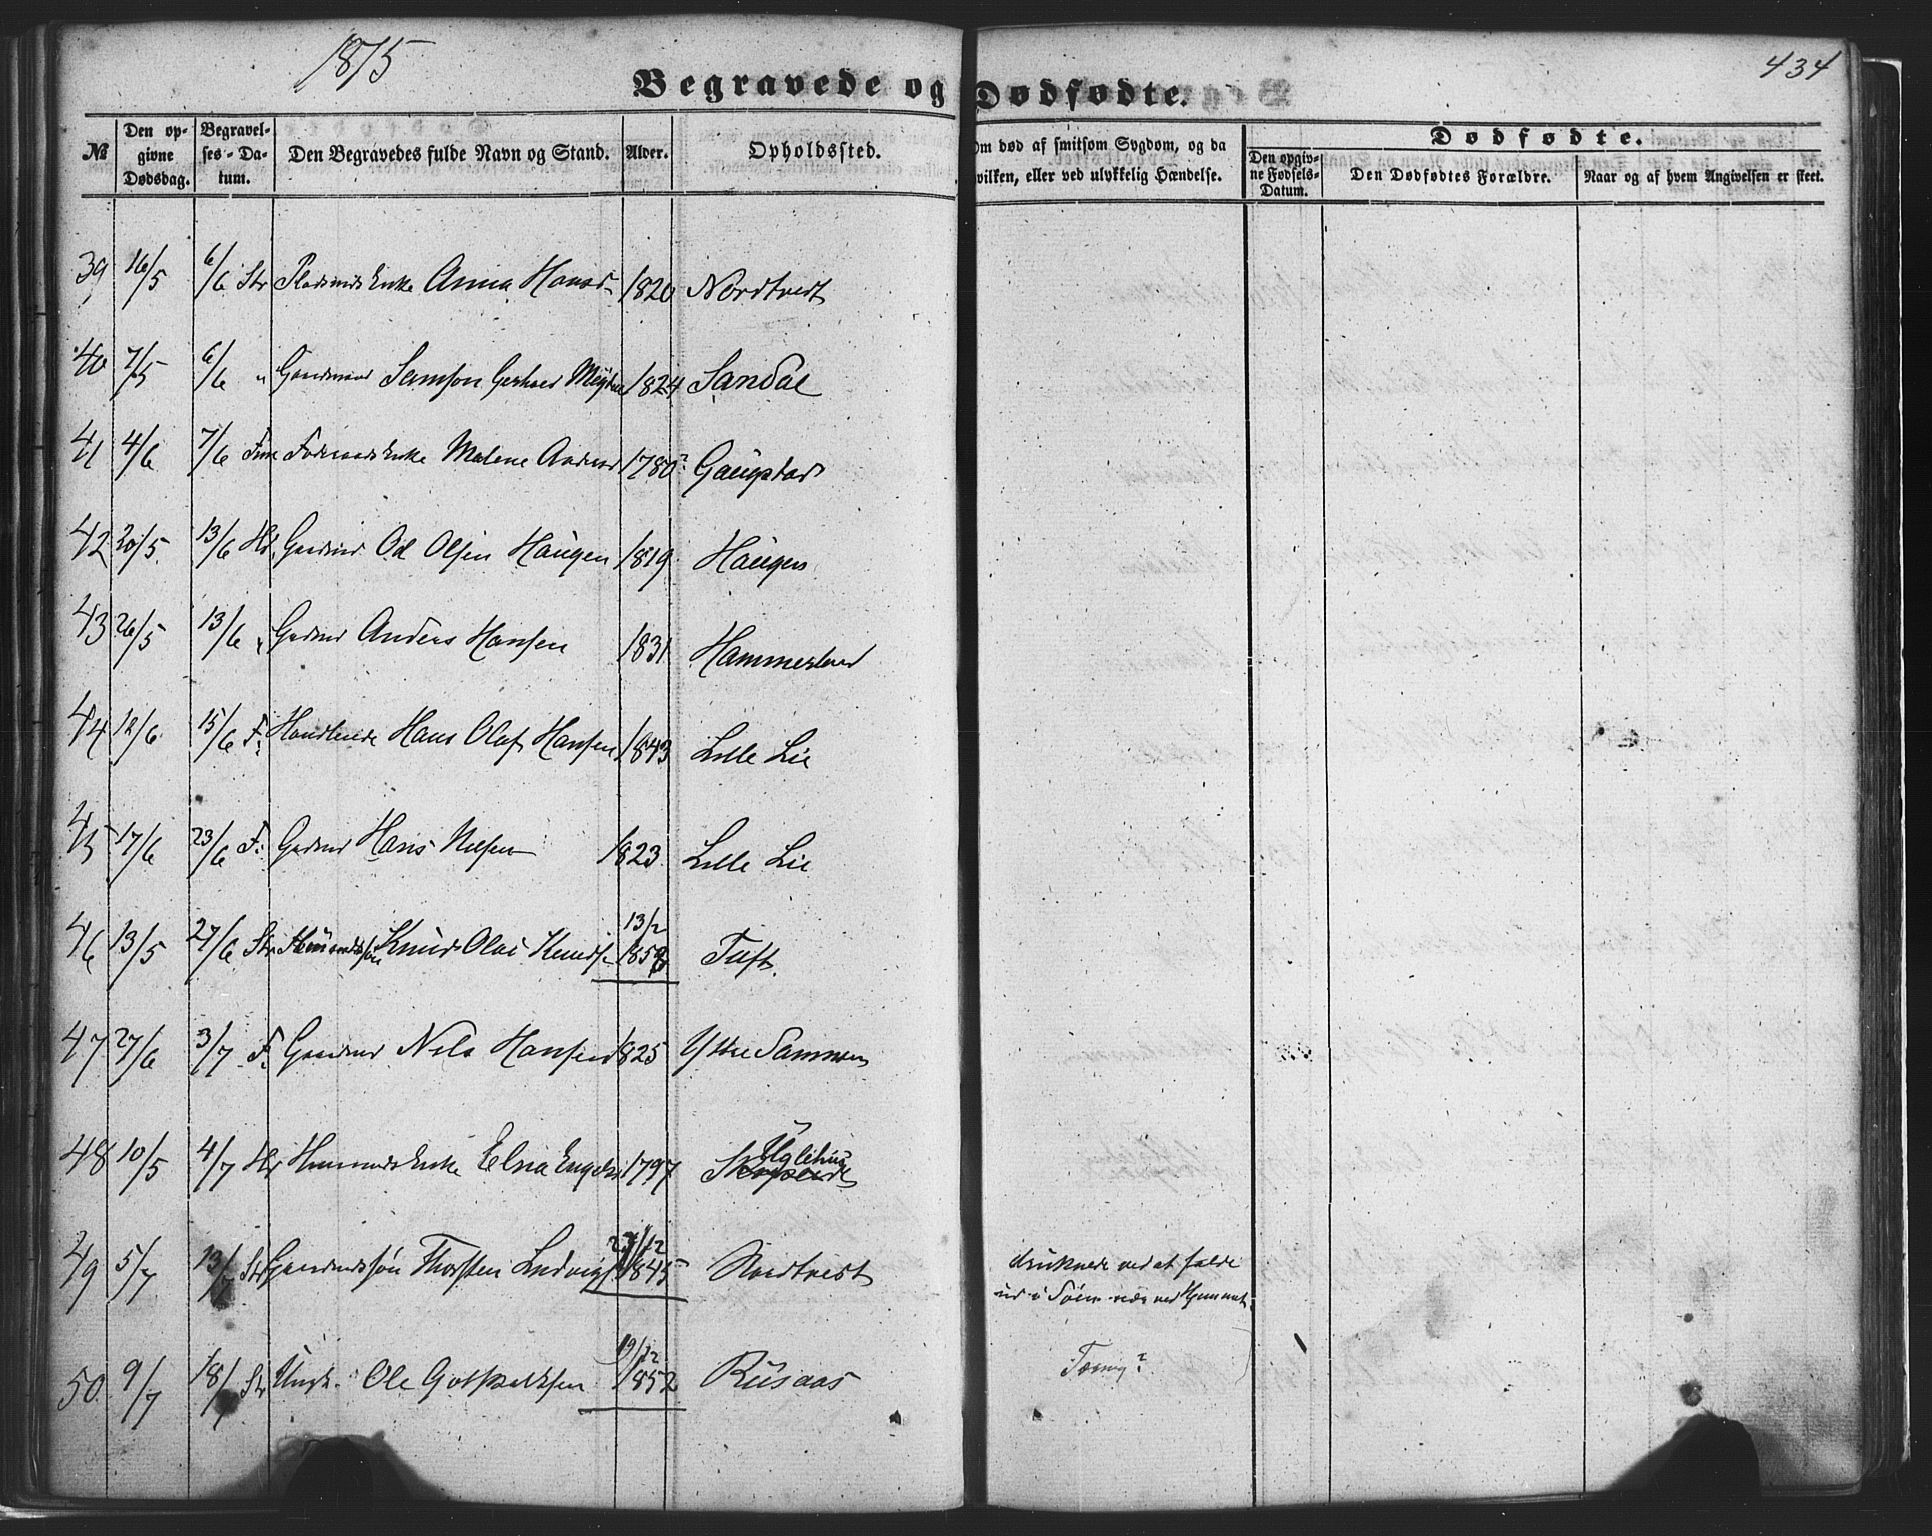 1875
434
Begravede og Dødfødte.
№ Den op- givne Dødsdag. Begravel- ses-Da- tum. Den Begravedes fulde Navn og Stand. Alder. Opholdssted. Om død af smitsom Sygdom, og da hvilken, eller ved ulykkelig Hændelse. Dødfødte.
Den opgiv- ne Fødsels- Datum. Den Dødfødtes Forældre. Naar og af hvem Angivelsen er skeet.
39 16/5 6/6 Str Enke Anna Hansd 1820 Nordtvedt
40 7/5 6/6 " Gaardmand Samson 1824 Sandal
41 4/6 7/6 Enke Malene Andersd 1780? Gaupstad
42 20/5 13/6 Hd Gaardmd Od Olsen Haugen 1819 Haugen
43 26/5 13/6 " Gardmd Anders Hansen 1831 Hammerland
44 12/6 15/6 F. Handlende Hans Olaf Hansen 1843 Lille Lie
45 17/6 23/6 F. Gardmd Hans Nilsen 1823 Lille Lie
46 13/5 27/6 Str Knud Olai Knuds 13/2 1858 Tuft.
47 27/6 3/7 F. Gaardmd Nils Hansen 1825 Ytre Samnøen
48 10/5 4/7 Hd Huusmands Enke Elna Engels 1797 Uglehus
49 5/7 13/7 Str Gaardmdssøn Thorsten Ludvigs 23/12 1845 Nordtvedt druknede ved at falde
ud i Søen nær ved Hjemmet
50 9/7 18/7 Str Ungk. Ole Gotskalksen 19/12 1852 Rusaas Tæring?